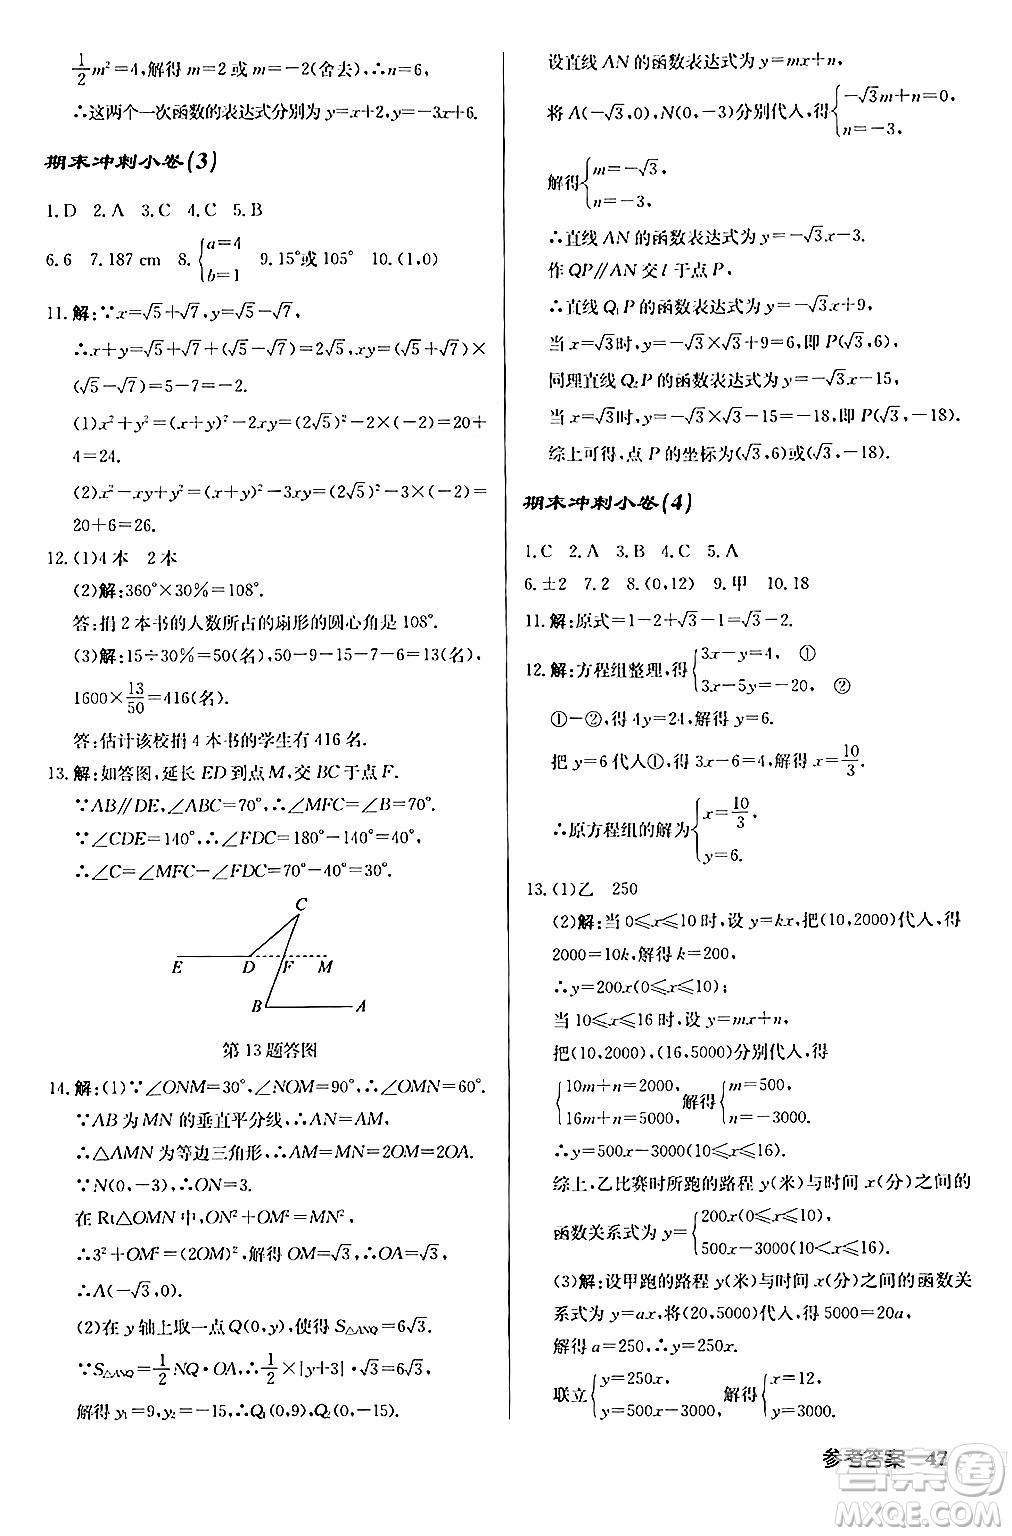 1/2 m²=4,解得 m=2 或 m=-2(舍去),∴n=6,
∴这两个一次函数的表达式分别为 y=x+2,y=-3x+6.
期末冲刺小卷(3)
1.D 2.A 3.C 4.C 5.B
6.6 7.187 cm 8.{a=4 b=1 9.15°或 105° 10.(1,0)
11.解:∵x=√5+√7,y=√5-√7,
∴x+y=√5+√7+(√5-√7)=2√5,xy=(√5+√7)×
(√5-√7)=5-7=-2.
(1)x²+y²=(x+y)²-2xy=(2√5)²-2×(-2)=20+
4=24.
(2)x²-xy+y²=(x+y)²-3xy=(2√5)²-3×(-2)=
20+6=26.
12.(1)4 本 2 本
(2)解:360°×30%=108°.
答:捐 2 本书的人数所占的扇形的圆心角是 108°.
(3)解:15÷30%=50(名),50-9-15-7-6=13(名),
1600×13/50=416(名).
答:估计该校捐 4 本书的学生有 416 名.
13.解:如答图,延长 ED 到点 M,交 BC 于点 F.
∵AB∥DE,∠ABC=70°,∴∠MFC=∠B=70°.
∵∠CDE=140°,∴∠FDC=180°-140°=40°,
∴∠C=∠MFC-∠FDC=70°-40°=30°.
C
E D F M
B A
第 13 题答图
14.解:(1)∵∠ONM=30°,∠NOM=90°,∴∠OMN=60°.
∵AB 为 MN 的垂直平分线,∴AN=AM,
∴△AMN 为等边三角形,∴AM=MN=AN=2OM.
∵N(0,-3),∴ON=3.
在 Rt△OMN 中,ON²+OM²=MN²,
∴3²+OM²=(2OM)²,解得 OM=√3,∴OA=√3,
∴A(-√3,0).
(2)在 y 轴上取一点 Q(0,y),使得 S△ANQ=6√3.
∵S△ANQ=1/2 NQ·OA,∴1/2×|y+3|·√3=6√3,
解得 y₁=9,y₂=-15,∴Q₁(0,9),Q₂(0,-15).
设直线 AN 的函数表达式为 y=mx+n,
将 A(-√3,0),N(0,-3)分别代入,得{-√3m+n=0, n=-3,
解得{m=-√3, n=-3,
∴直线 AN 的函数表达式为 y=-√3x-3.
作 QP∥AN 交 l 于点 P,
∴直线 Q₁P 的函数表达式为 y=-√3x+9,
当 x=√3时,y=-√3×√3+9=6,即 P(√3,6),
同理直线 Q₂P 的函数表达式为 y=-√3x-15,
当 x=√3时,y=-√3×√3-15=-18,即 P(√3,-18).
综上可得,点 P 的坐标为(√3,6)或(√3,-18).
期末冲刺小卷(4)
1.C 2.A 3.B 4.C 5.A
6.±2 7.2 8.(0,12) 9.甲 10.18
11.解:原式=1-2+√3-1=√3-2.
12.解:方程组整理,得{3x-y=4, ① 3x-5y=-20, ②
①-②,得 4y=24,解得 y=6.
把 y=6 代入①,得 3x-6=4,解得 x=10/3.
∴原方程组的解为{x=10/3, y=6.
13.(1)乙 250
(2)解:当 0≤x≤10 时,设 y=kx,把(10,2000)代入,得
2000=10k,解得 k=200,
∴y=200x(0≤x≤10);
当 10≤x≤16 时,设 y=mx+n,
把(10,2000),(16,5000)分别代入,得
{10m+n=2000, 16m+n=5000, 解得{m=500, n=-3000.
∴y=500x-3000(10≤x≤16).
综上,乙比赛时所跑的路程 y(米)与时间 x(分)之间的
函数关系式为 y={200x(0≤x≤10), 500x-3000(10≤x≤16).
(3)解:设甲跑的路程 y(米)与时间 x(分)之间的函数关
系式为 y=ax,将(20,5000)代入,得 5000=20a,
解得 a=250,∴y=250x.
联立{y=250x, y=500x-3000, 解得{x=12, y=3000.
参考答案 47
答案圈
MXQE.COM